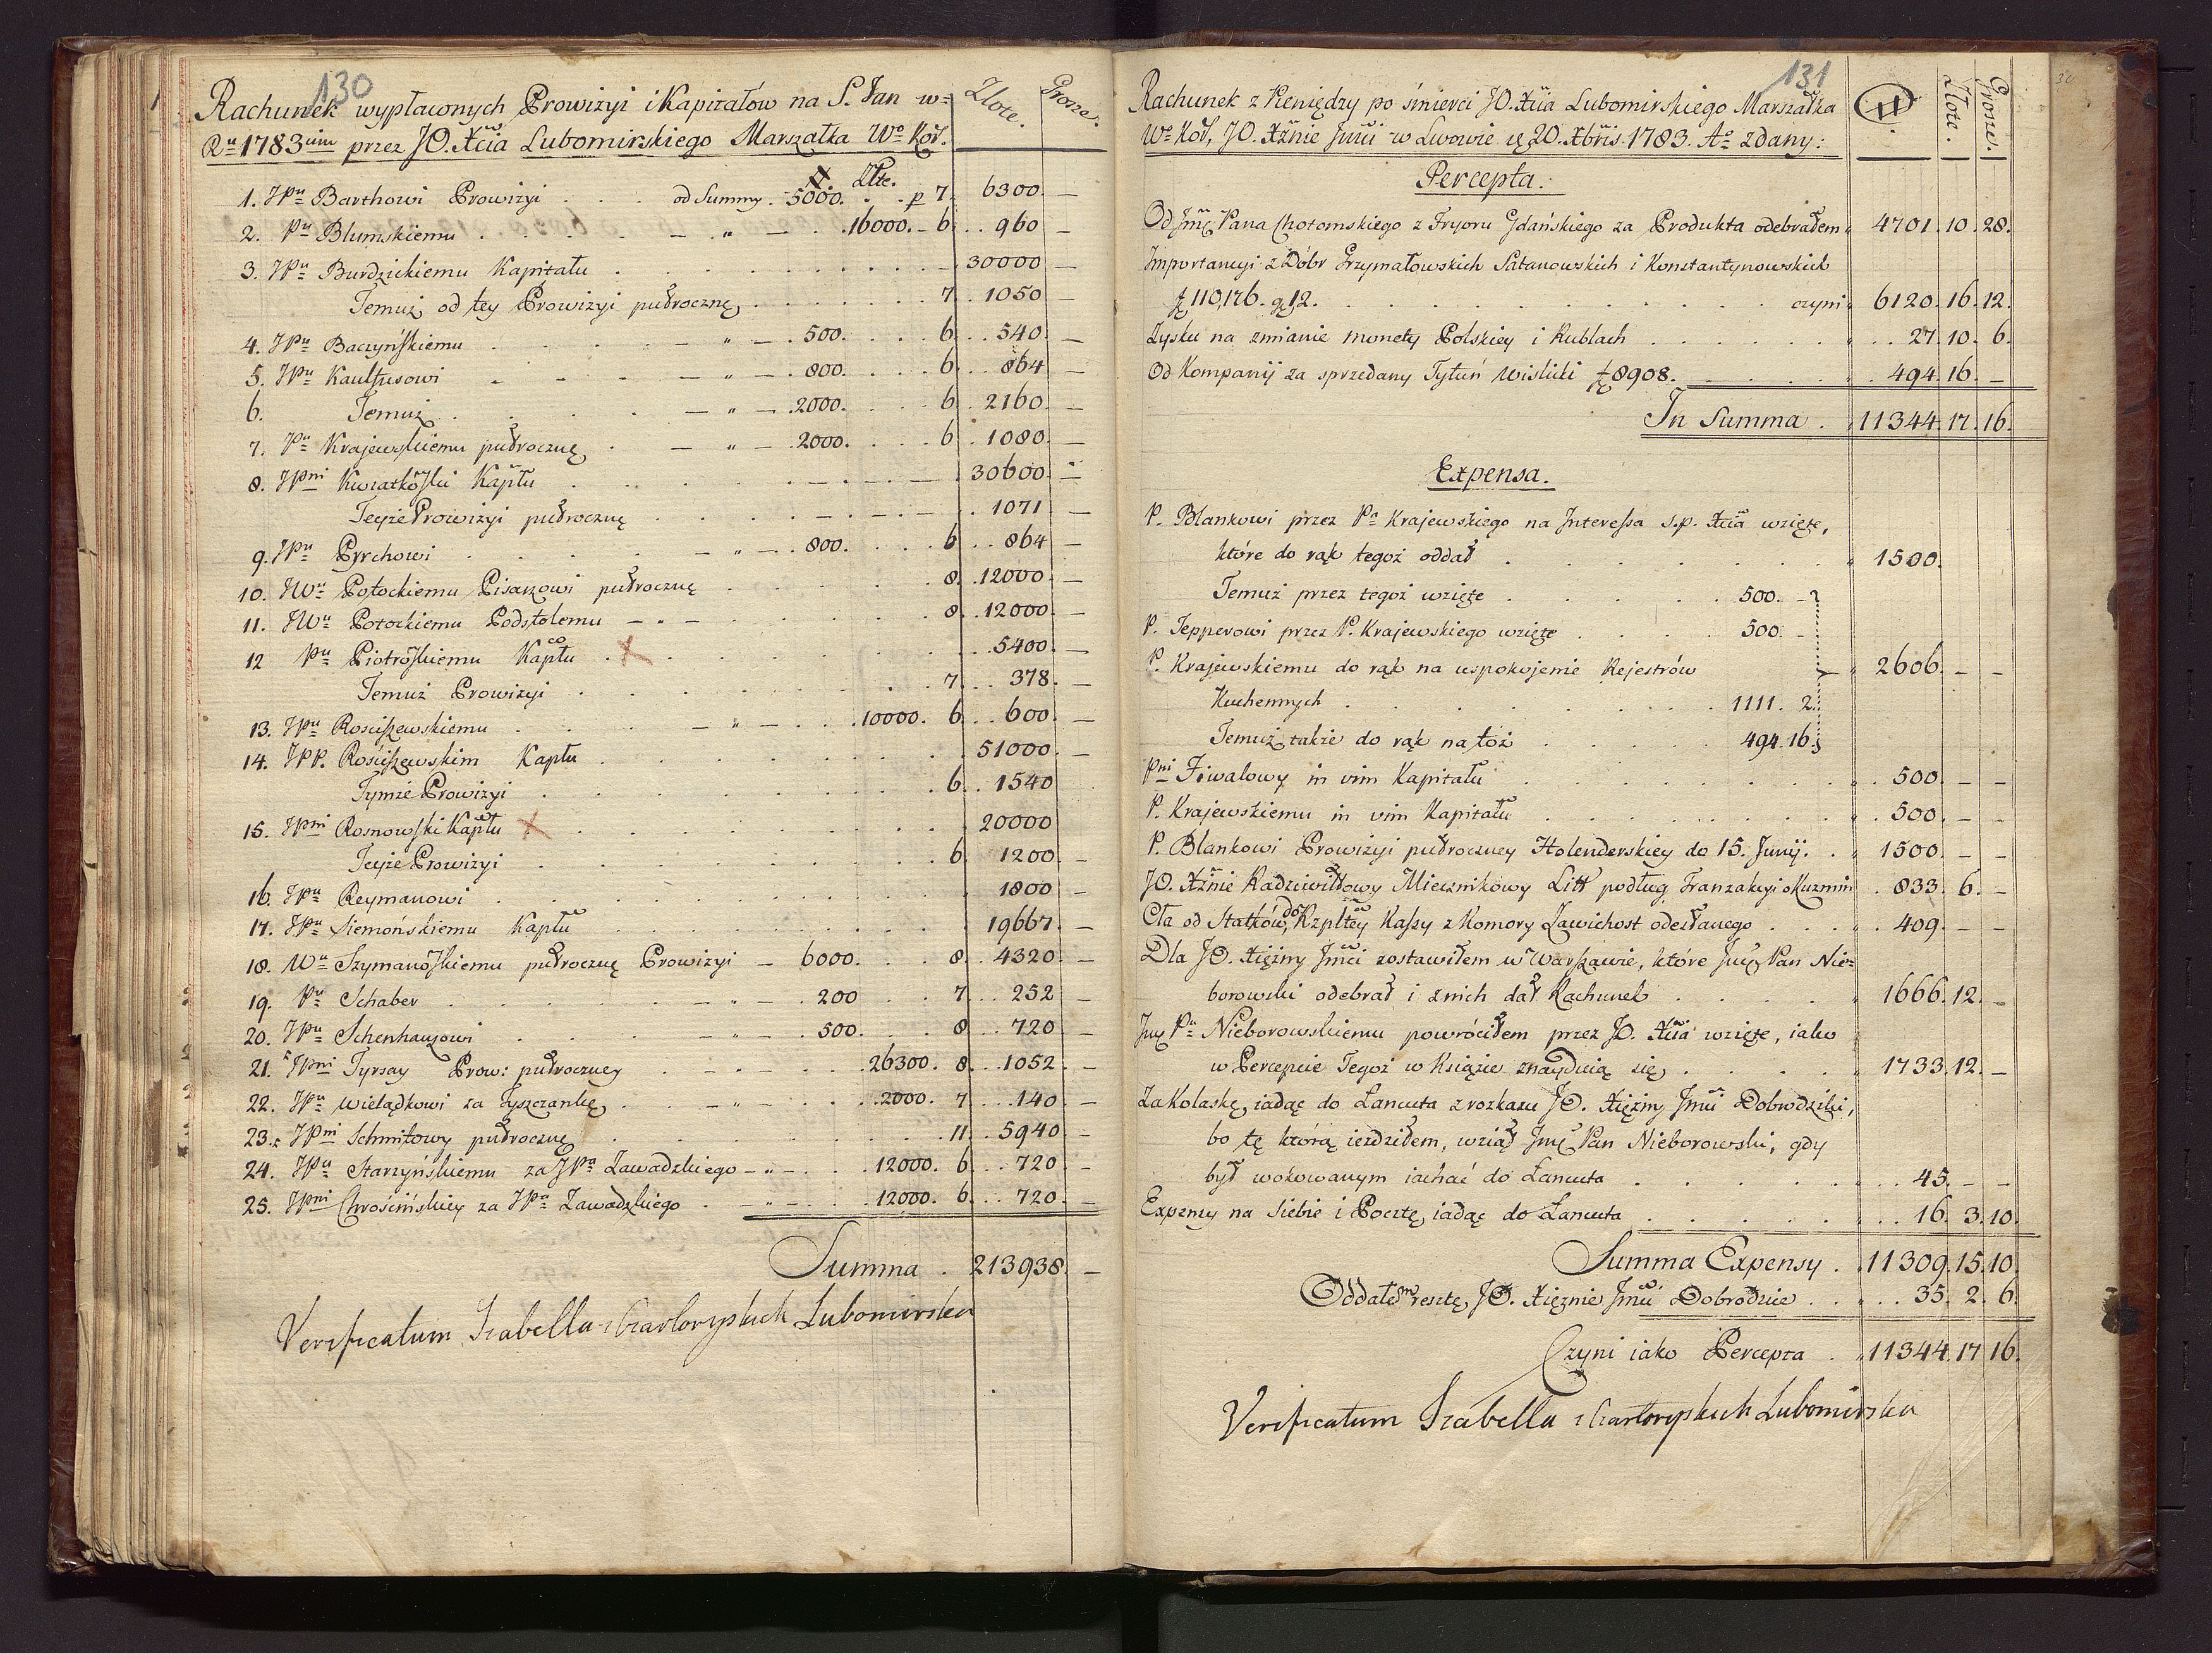 130
Rachunek wypłaconych Prowizyi i Kapitałow na S. Jan w=
Ru 1783cim przez JO. Xcia Lubomirskiego Marszałka Wo Kor.
Złote. Grosze.
# Złte.
1. JPu Barthowi Prowizyi . . . od Summy . 5000. . . p 7. 6300. —
2. Pu Blumskiemu . . . — " — . . 16000. – 6. . . 960 —
3. JPu Burdzickiemu Kapitału . . . . 30000 —
Temuż od tey Prowizyi pułroczną . . . 7. . 1050 —
4. JPu Baczyńskiemu . . . — " — . 500. . . . 6. . . 540. —
5. JPu Kaultusowi . . . — " — . 800. . . . 6. . . 864 —
6. Temuż . . . — " — . 2000. . . . 6. . 2160. —
7. Pu Krajewskiemu pułroczną . — " — . 2000. . . . 6. . 1080. —
8. JPni Kwiatkoski Kapłu . . . . 30600. —
Teyże Prowizyi pułroczną . . . . 1071 —
9. JPu Pyrchowi . . . — " — . 800. . . . 6. . . 864 —
10. JWu Potockiemu Pisarzowi pułroczną . . . 8. . 12000. —
11. JWu Potockiemu Podstolemu — " — . . . 8. . 12000. —
12 Pu Piotroskiemu Kapłu . X . . . 5400. —
Temuż Prowizyi . . . 7. . . 378. —
13. JPu Rosciszewskiemu . . . — " — . . . 10000. 6. . . 600. —
14. JPP. Rościszewskim Kapłu . . . . 51000. —
Tymże Prowizyi . . . 6. . 1540
15. JPni Rosnowski Kapłu X . . . 20000
Teyże Prowizyi . . . 6. 1200. —
16. JPu Reymanowi . . . . 1800 —
17. JPu Siemońskiemu Kapłu . . . . 19667. —
18. Wu Szymanoskiemu pułroczną Prowizyi — 6000. . . . 8. . 4320. —
19. Pu Schaber . . . — " — . 200 . . 7. . . 252 —
20. JPu Schenhauzowi . . . — " — . 500. . . . 8. . . 720. —
21. JPni Tyrsay Prow: pułroczney . — . — . . 26300. 8. . . 1052. —
22. JPu Wielądkowi za Łyszczankę . . . — " — . . . 2000. 7. . . 140. —
23. JPni Schmitowy pułroczną . . . . 11. . 5940. —
24. JPu Starzyńskiemu za JPa Zawadzkiego — " — . . . 12000. 6. . . 720. —
25. JPni Chrościńskiey za JPa Zawadzkiego . — " — . . . 12000. 6. . . 720. —
Summa . 213938. —
Verificatum Izabella z Czartoryskich Lubomirska
131
Rachunek z Pieniędzy po śmierci JO. Xcia Lubomirskiego Marszałka
Wo Kor, JO. Xżnie Jmci w Lwowie d. 20. Xbris. 1783. Ao zdany:
# Złote. Grosze.
Percepta.
Od Jmć Pana Chotomskiego z Fryoru Gdańskiego za Produkta odebrałem " 4701. 10. 28.
Importancyi z Dóbr Grzymałowskich Satanowskich i Konstantynowskich
f 110,176. g 12. . . . czyni " 6120. 16. 12.
Zysku na zmianie monety Polskiey i Rublach . . . " . . 27. 10. 6.
Od Kompanij za sprzedany Tytuń Wislicki f 8908. . . . . 494. 16. —
In Summa . " 11344. 17. 16.
Expensa.
P. Blankowi przez Pa Krajewskiego na Interessa s.p. Xcia wzięte,
które do rąk tegoż oddał . . . " 1500.
Temuż przez tegoż wzięte . . . 500. —
P. Tepperowi przez P. Krajewskiego wzięte . . . 500. —
P. Krajewskiemu do rąk na uspokojenie Rejestrów " 2606. — —
Kuchennych . . . 1111. 2.
Temuż także do rąk na toż . . . 494. 16.
Pni Fiwalowy in vim Kapitału . . . " . 500. — —
P. Krajewskiemu in vim Kapitału . . . " . 500. — —
P. Blankowi Prowizyi pułroczney Holenderskiey do 15. Junij. . " 1500. — —
JO. Xżnie Radziwiłłowy Miecznikowy Litt podług Tranzakcyi o Kuzmin . 833. 6. —
Cła od Statków, do Rzpltey Kassy z Komory Zawichost odesłanego . . . " . 409. — —
Dla JO. Xiężny Jmci zostawiłem w Warszawie, które Jmć Pan Nie=
borowski odebrał i z nich dał Rachunek . . . " 1666. 12. —
Jmć Pu Nieborowskiemu powróciłem przez JO. Xcia wzięte, iako
w Percepcie Tegoż w Książce znayduią się, . . . " 1733. 12. —
Za Kolaskę, iadąc do Łancuta z rozkazu JO. Xiężny Jmci Dobrodziki,
bo tę którą ieździłem, wziął Jmć Pan Nieborowski, gdy
był wokowanym iachać do Łancuta . . . . 45. — —
Expensy na Siebie i Pocztę, iadąc do Łancuta . . . . 16. 3. 10.
Summa Expensy . . 11309. 15. 10.
Oddałem resztę, JO. Xiężnie Jmci Dobrodzice . . " . . 35. 2. 6.
Czyni iako Percepta . " 11344. 17 16.
Verificatum Izabella z Czartoryskich Lubomirska